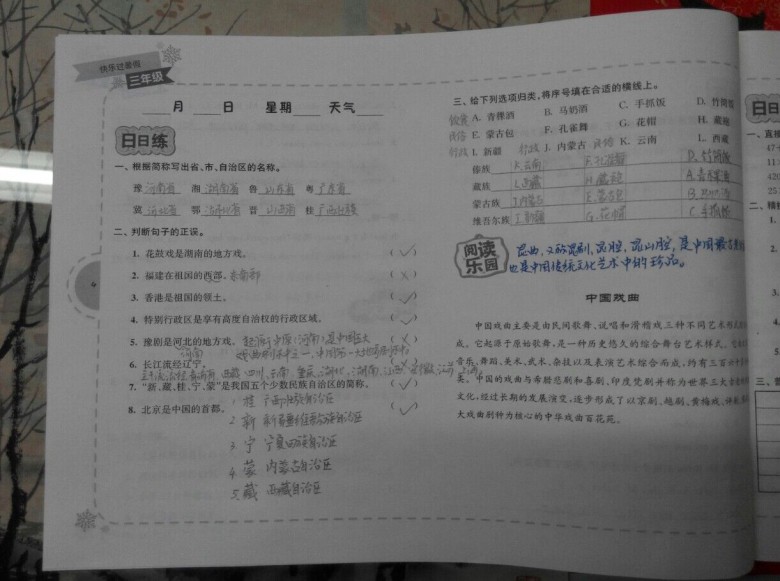 快乐过暑假
三年级
月 日 星期 天气
日日练
一、根据简称写出省、市、自治区的名称。
豫 河南省 湘 湖南省 鲁 山东省 粤 广东省
冀 河北省 鄂 湖北省 晋 山西省 桂
二、判断句子的正误。
1. 花鼓戏是湖南的地方戏。 (✓)
2. 福建在祖国的西部。东南部 (×)
3. 香港是祖国的领土。 (✓)
4. 特别行政区是享有高度自治权的行政区域。 (✓)
5. 豫剧是河北的地方戏。
河南
6. 长江流经辽宁。
7. “新、藏、桂、宁、蒙”是我国五个少数民族自治区的简称。 (✓)
8. 北京是中国的首都。 (✓)
1 桂 广西壮族自治区
2 新 新疆维吾尔族自治区
3 宁 宁夏回族自治区
4 蒙 内蒙古自治区
5 藏 西藏自治区
三、给下列选项归类,将序号填在合适的横线上。
饮食 A. 青稞酒 B. 马奶酒 C. 手抓饭 D. 竹筒饭
民俗 E. 蒙古包 F. 孔雀舞 G. 花帽 H. 藏袍
行政 I. 新疆 行政 J. 内蒙古 民俗 K. 云南 L. 西藏
傣族 K.云南 F.孔雀舞 D.竹筒饭
藏族 L.西藏 H.藏袍 A.青稞酒
蒙古族 J.内蒙古 E.蒙古包 B.马奶酒
维吾尔族 I.新疆 G.花帽 C.手抓饭
阅读乐园
昆曲,又称昆剧,昆腔,昆山腔,是中国最古
也是中国传统文化艺术中的珍品。
中国戏曲
中国戏曲主要是由民间歌舞、说唱和滑稽戏三种不同艺术形式
成。它起源于原始歌舞,是一种历史悠久的综合舞台艺术样式。
音乐、舞蹈、美术、武术、杂技以及表演艺术综合而成,约有三百六十
类。中国的戏曲与希腊悲剧和喜剧、印度梵剧并称为世界三大古
文化,经过长期的发展演变,逐步形成了以京剧、越剧、黄梅戏、评剧、
大戏曲剧种为核心的中华戏曲百花苑。